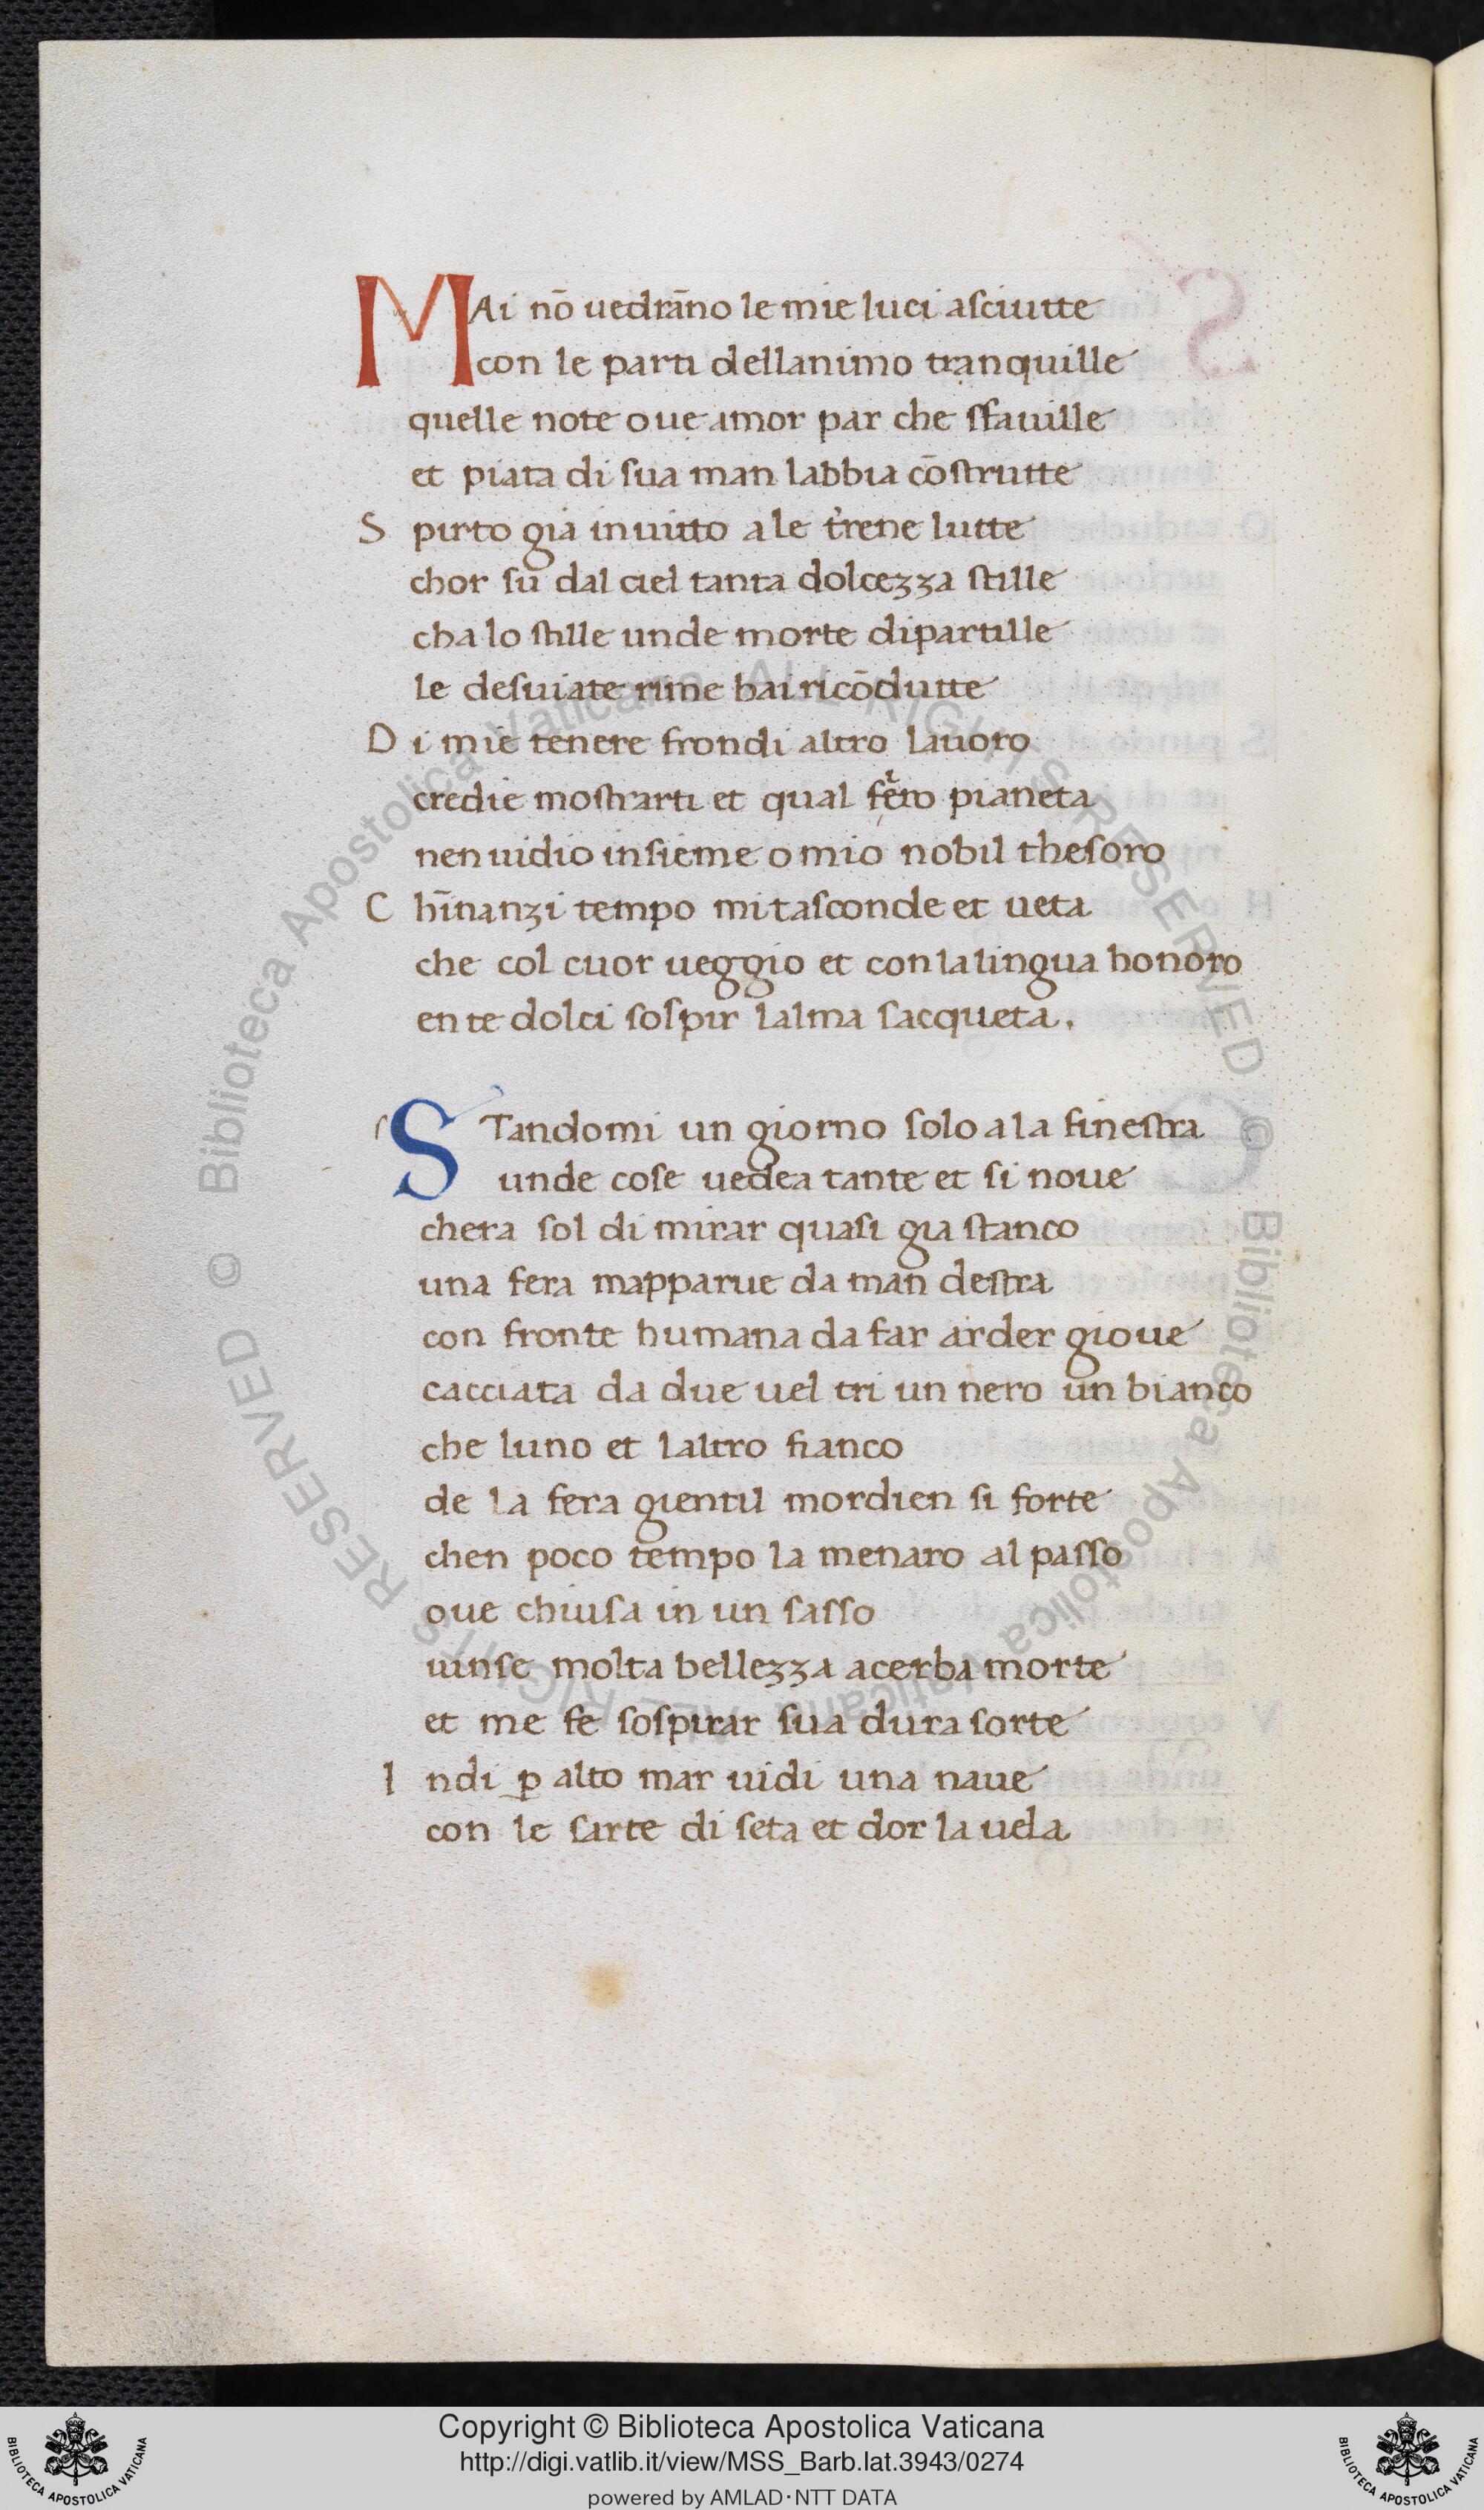 MAi nō uedrāno le mie luci asciutte
con le parti dellanimo tranquille
quelle note oue amor par che sfauille
et piata di sua man labbia cōstrutte
Spirto già inuitto a le t̉rene lutte
chor sù dal ciel tanta dolcezza stille
cha lo stille unde morte dipartille
le desuiate rime hai ricōdutte
Di mie tenere frondi altro lauoro
credie mostrarti et qual fero pianeta
nen uidio insieme o mio nobil thesoro
Chīnanzi tempo mi tasconde et ueta
che col cuor ueggio et con la lingua honoro
en te dolci sospir lalma sacqueta.
STandomi un giorno solo a la finestra
unde cose uedea tante et si noue
chera sol di mirar quasi gia stanco
una fera mapparue da man destra
con fronte humana da far arder gioue
cacciata da due uel tri un nero un bianco
che luno et laltro fianco
de la fera gientil mordien si forte
chen poco tempo la menaro al passo
oue chiusa in un sasso
uinse molta bellezza acerba morte
et me fe sospirar sua dura sorte
Indi ꝑ alto mar uidi una naue
con le sarte di seta et dor la uela
© Biblioteca Apostolica Vaticana ALL RIGHTS RESERVED © Biblioteca Apostolica Vaticana ALL RIGHTS RESERVED
Copyright © Biblioteca Apostolica Vaticana
http://digi.vatlib.it/view/MSS_Barb.lat.3943/0274
powered by AMLAD·NTT DATA
BIBLIOTECA APOSTOLICA VATICANA
BIBLIOTECA APOSTOLICA VATICANA